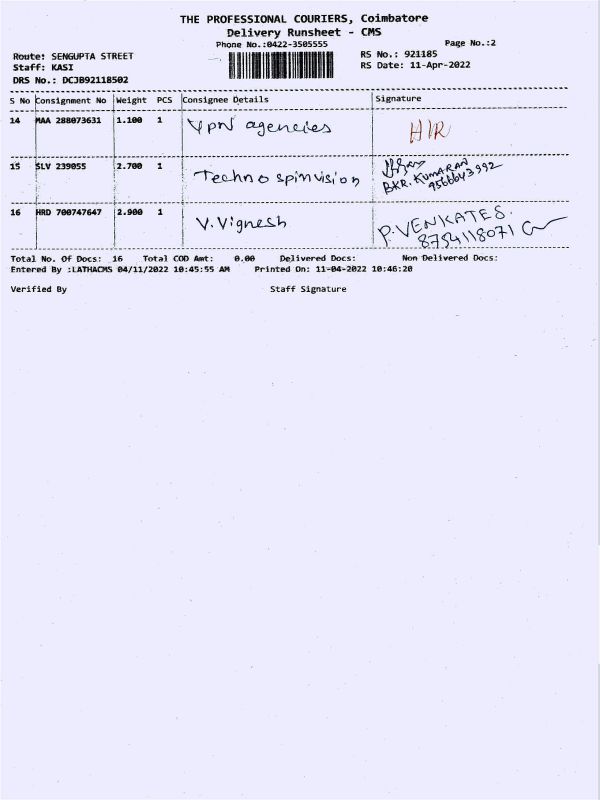 THE PROFESSIONAL COURIERS, Coimbatore
Delivery Runsheet - CMS
Phone No.:0422-3505555
Page No.:2
Route: SENGUPTA STREET
RS No.: 921185
Staff: KASI
RS Date: 11-Apr-2022
DRS No.: DCJB92118502
S No Consignment No Weight PCS Consignee Details Signature
14 MAA 288073631 1.100 1 Vpn agencies HIR
15 SLV 239055 2.700 1 Techno spinvision
BKR. KUMARAN
9566643992
16 HRD 700747647 2.900 1 V. Vignesh P. VENKATES.
8754118071
Total No. Of Docs: 16 Total COD Amt: 0.00 Delivered Docs: Non Delivered Docs:
Entered By :LATHACMS 04/11/2022 10:45:55 AM Printed On: 11-04-2022 10:46:20
Verified By Staff Signature